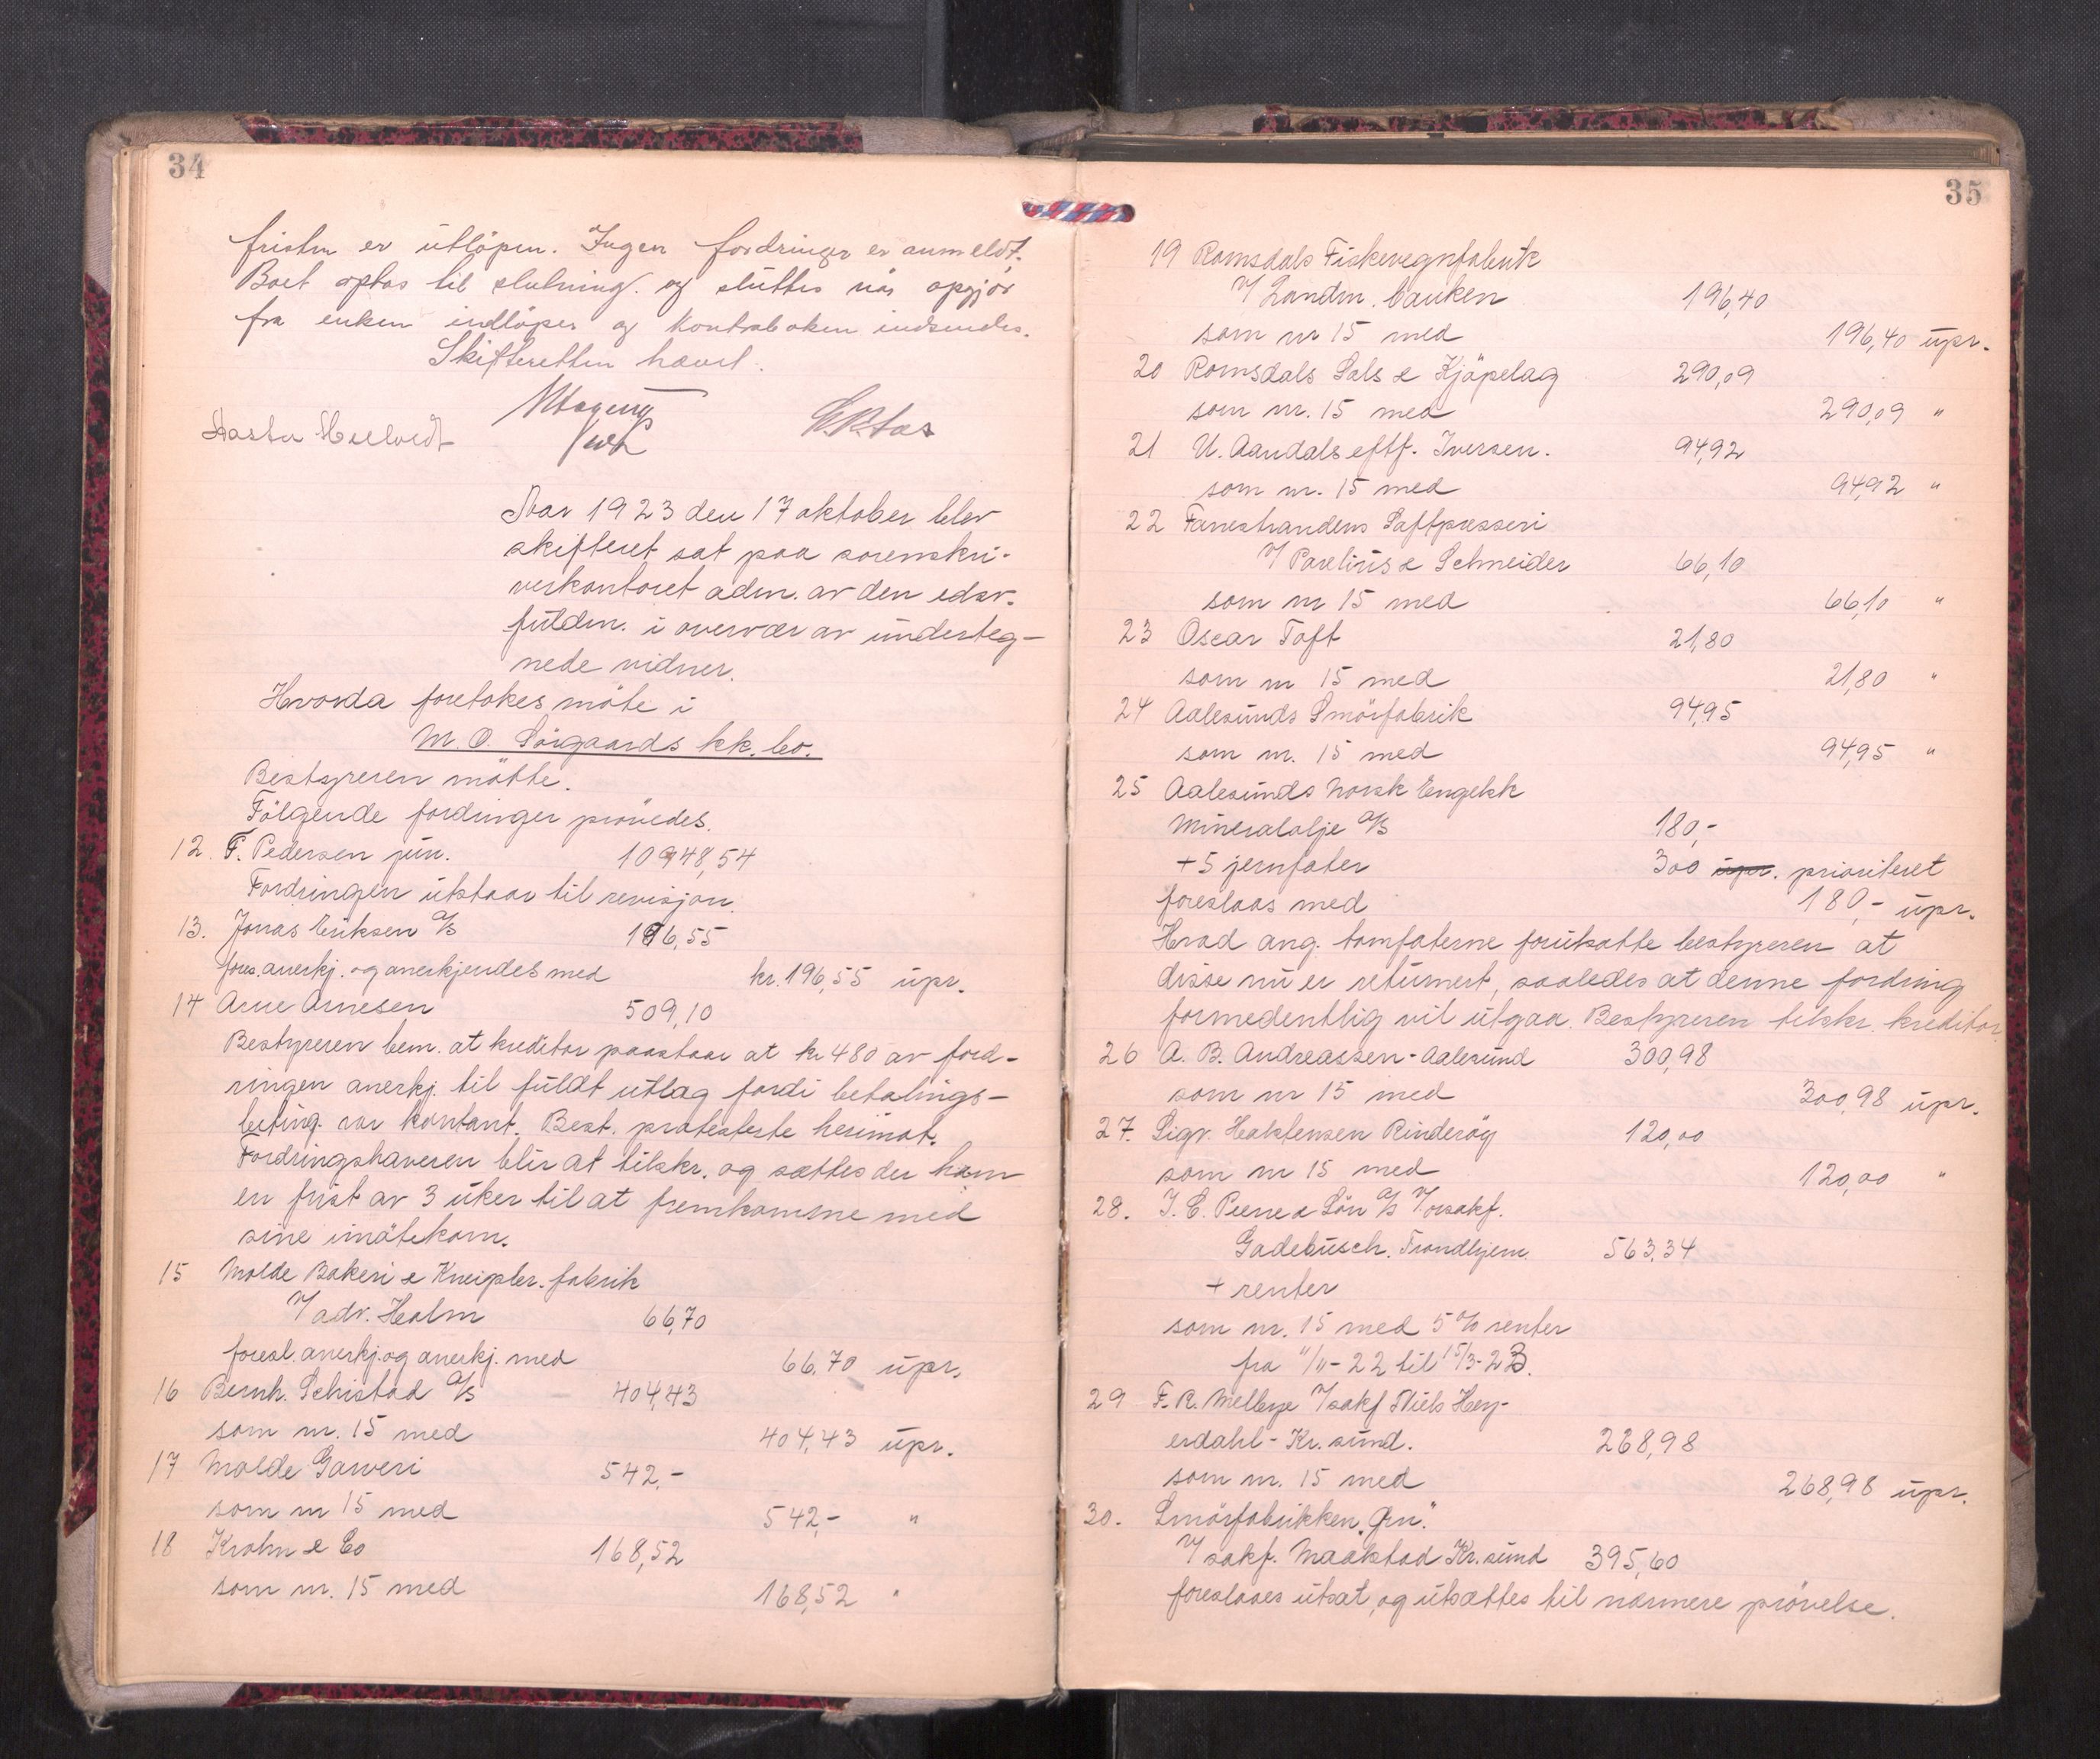 34
fristen er utløpen. Ingen fordringer er anmeldt.
Boet optas til slutning og sluttes når opgjör
fra enken indløper og Kontraboken indsendes.
Skifteretten hævet.
Aar 1923 den 17 oktober blev
skifteret sat paa sorenskri-
verkontoret adm. av den edsv.
fuldm. i overvær av underteg-
nede vidner.
Hvorda foretokes möte i
M. O. Sörgaards kk. bo.
Bestyreren mötte.
Fölgende fordringer prövedes.
12. F. Pedersen jun. 10948,54
Fordringen utstaar til revisjon.
13. Jonas Eriksen A/S 196,55
fores. anerkj. og anerkjendes med kr. 196,55 upr.
14 Arne Arnesen 509,10
Bestyreren bem. at kreditor paastaar at kr 480 av ford-
ringen anerkj. til fuldt utlæg fordi betalings-
beting. var kontant. Best. protesterte herimot.
Fordringshaveren blir at tilskr. og sættes der ham
en frist av 3 uker til at fremkomme med
sine imötekom.
15 Molde Bakeri & Kneipbr. fabrik
V/ adv. Holm 66,70
foresl. anerkj. og anerkj. med 66,70 upr.
16 Bernh. Schistad A/S 404,43
som nr. 15 med 404,43 upr.
17 Molde Garveri 542,-
som nr 15 med 542,- "
18 Krohn & Co 168,52
som nr. 15 med 168,52 "
35
19 Romsdals Fiskevegnfabrik
V/ Landm. banken 196,40
som nr 15 med 196,40 upr.
20 Romsdals Sals & Kjöpelag 290,09
som nr. 15 med 290,09 "
21 U. Aandals eftf. Iversen. 94,92
som nr. 15 med 94,92 "
22 Fannestrandens Saftpresseri
V/ Parelius & Schneider 66,10
som nr 15 med 66,10 "
23 Oscar Toft 21,80
som nr 15 med 21,80 "
24 Aalesunds Smörfabrik 94,95
som nr. 15 med 94,95 "
25 Aalesunds Norsk Engelsk
Mineralolje A/S 180,-
+ 5 jernfater 300 upr. prioriteret
foreslaas med 180,- upr.
Hvad ang. tomfaterne forutsatte bestyreren at
disse nu er returnert, saaledes at denne fordring
formedentlig vil utgaa. Bestyreren tilskr. kreditor
26 A. B. Andreassen - Aalesund 300,98
som nr 15 med 300,98 upr.
27. Sigv. Haktensen Rinderöy 120,00
som nr 15 med 120,00 "
28. I. C. Piene & Sön A/S V/ orsakf.
Gadebusch. Trondhjem. 563,34
+ renter
som nr. 15 med 5 % renter
fra 11/11-22 til 15/3-23.
29 F. R. Mellbye V/ sakf Niels Hey-
erdahl - Kr.sund. 268,98
som nr. 15 med 268,98 upr.
30. Smörfabrikken "Örn".
V/ sakf. Maakstad Kr.sund 395,60
foreslaaes utsat, og utsættes til nærmere prövelse.